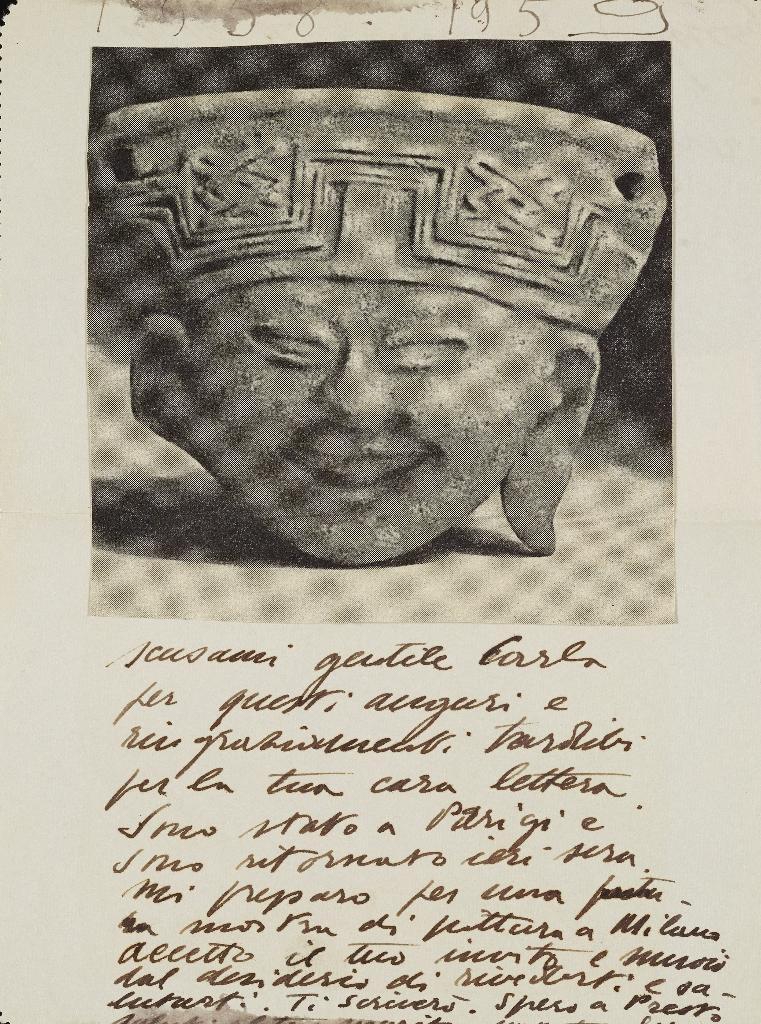 1958 - 1959
scusami gentile Carla
per questi auguri e
ringraziamenti tardivi
per la tua cara lettera.
Sono stato a Parigi e
sono ritornato ieri sera.
Mi preparo per una futu-
ra mostra di pittura a Milano
accetto il tuo invito e muoio
dal desiderio di rivederti e sa-
lutarti. Ti scriverò. Spero a Presto